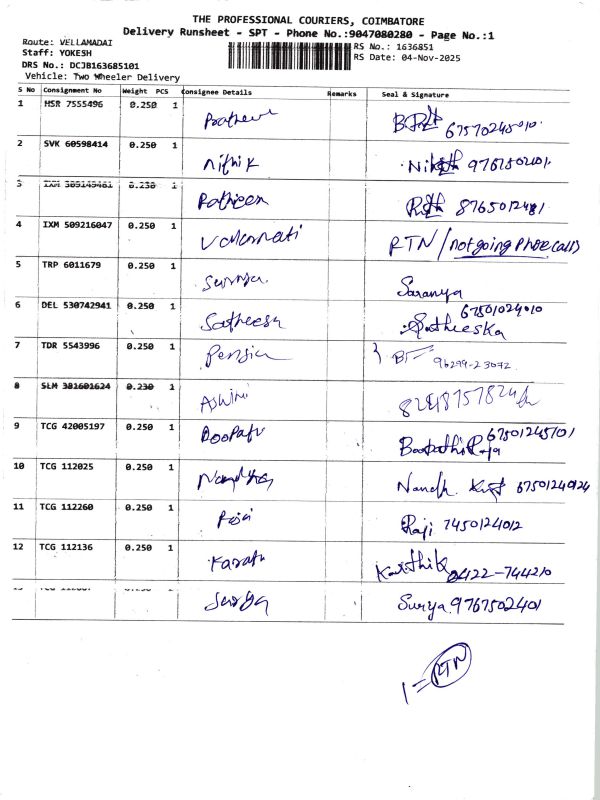 THE PROFESSIONAL COURIERS, COIMBATORE
Delivery Runsheet - SPT - Phone No.:9047080280 - Page No.:1
Route: VELLAMADAI
Staff: YOKESH
DRS No.: DCJB163685101
Vehicle: Two Wheeler Delivery
RS No.: 1636851
RS Date: 04-Nov-2025
S No Consignment No Weight PCS Consignee Details Remarks Seal & Signature
1 HSR 7555496 0.250 1
2 SVK 60598414 0.250 1 Nithik 9767502401
3 IXM 309149481 0.230 1 Ratheen 8765012481
4 IXM 509216047 0.250 1 RTN / not going Phone calls
5 TRP 6011679 0.250 1 Saranya
6 DEL 530742941 0.250 1 Satheesh 67501024010
7 TDR 5543996 0.250 1 96299-23072
8 SLM 381601624 0.230 1 Ashini
9 TCG 42005197 0.250 1 67501245101
10 TCG 112025 0.250 1 Nandh 67501240124
11 TCG 112260 0.250 1 Raji Raji 7450124012
12 TCG 112136 0.250 1 Karthik 0422-744210
Surya Surya 9767502401
1 = RTN